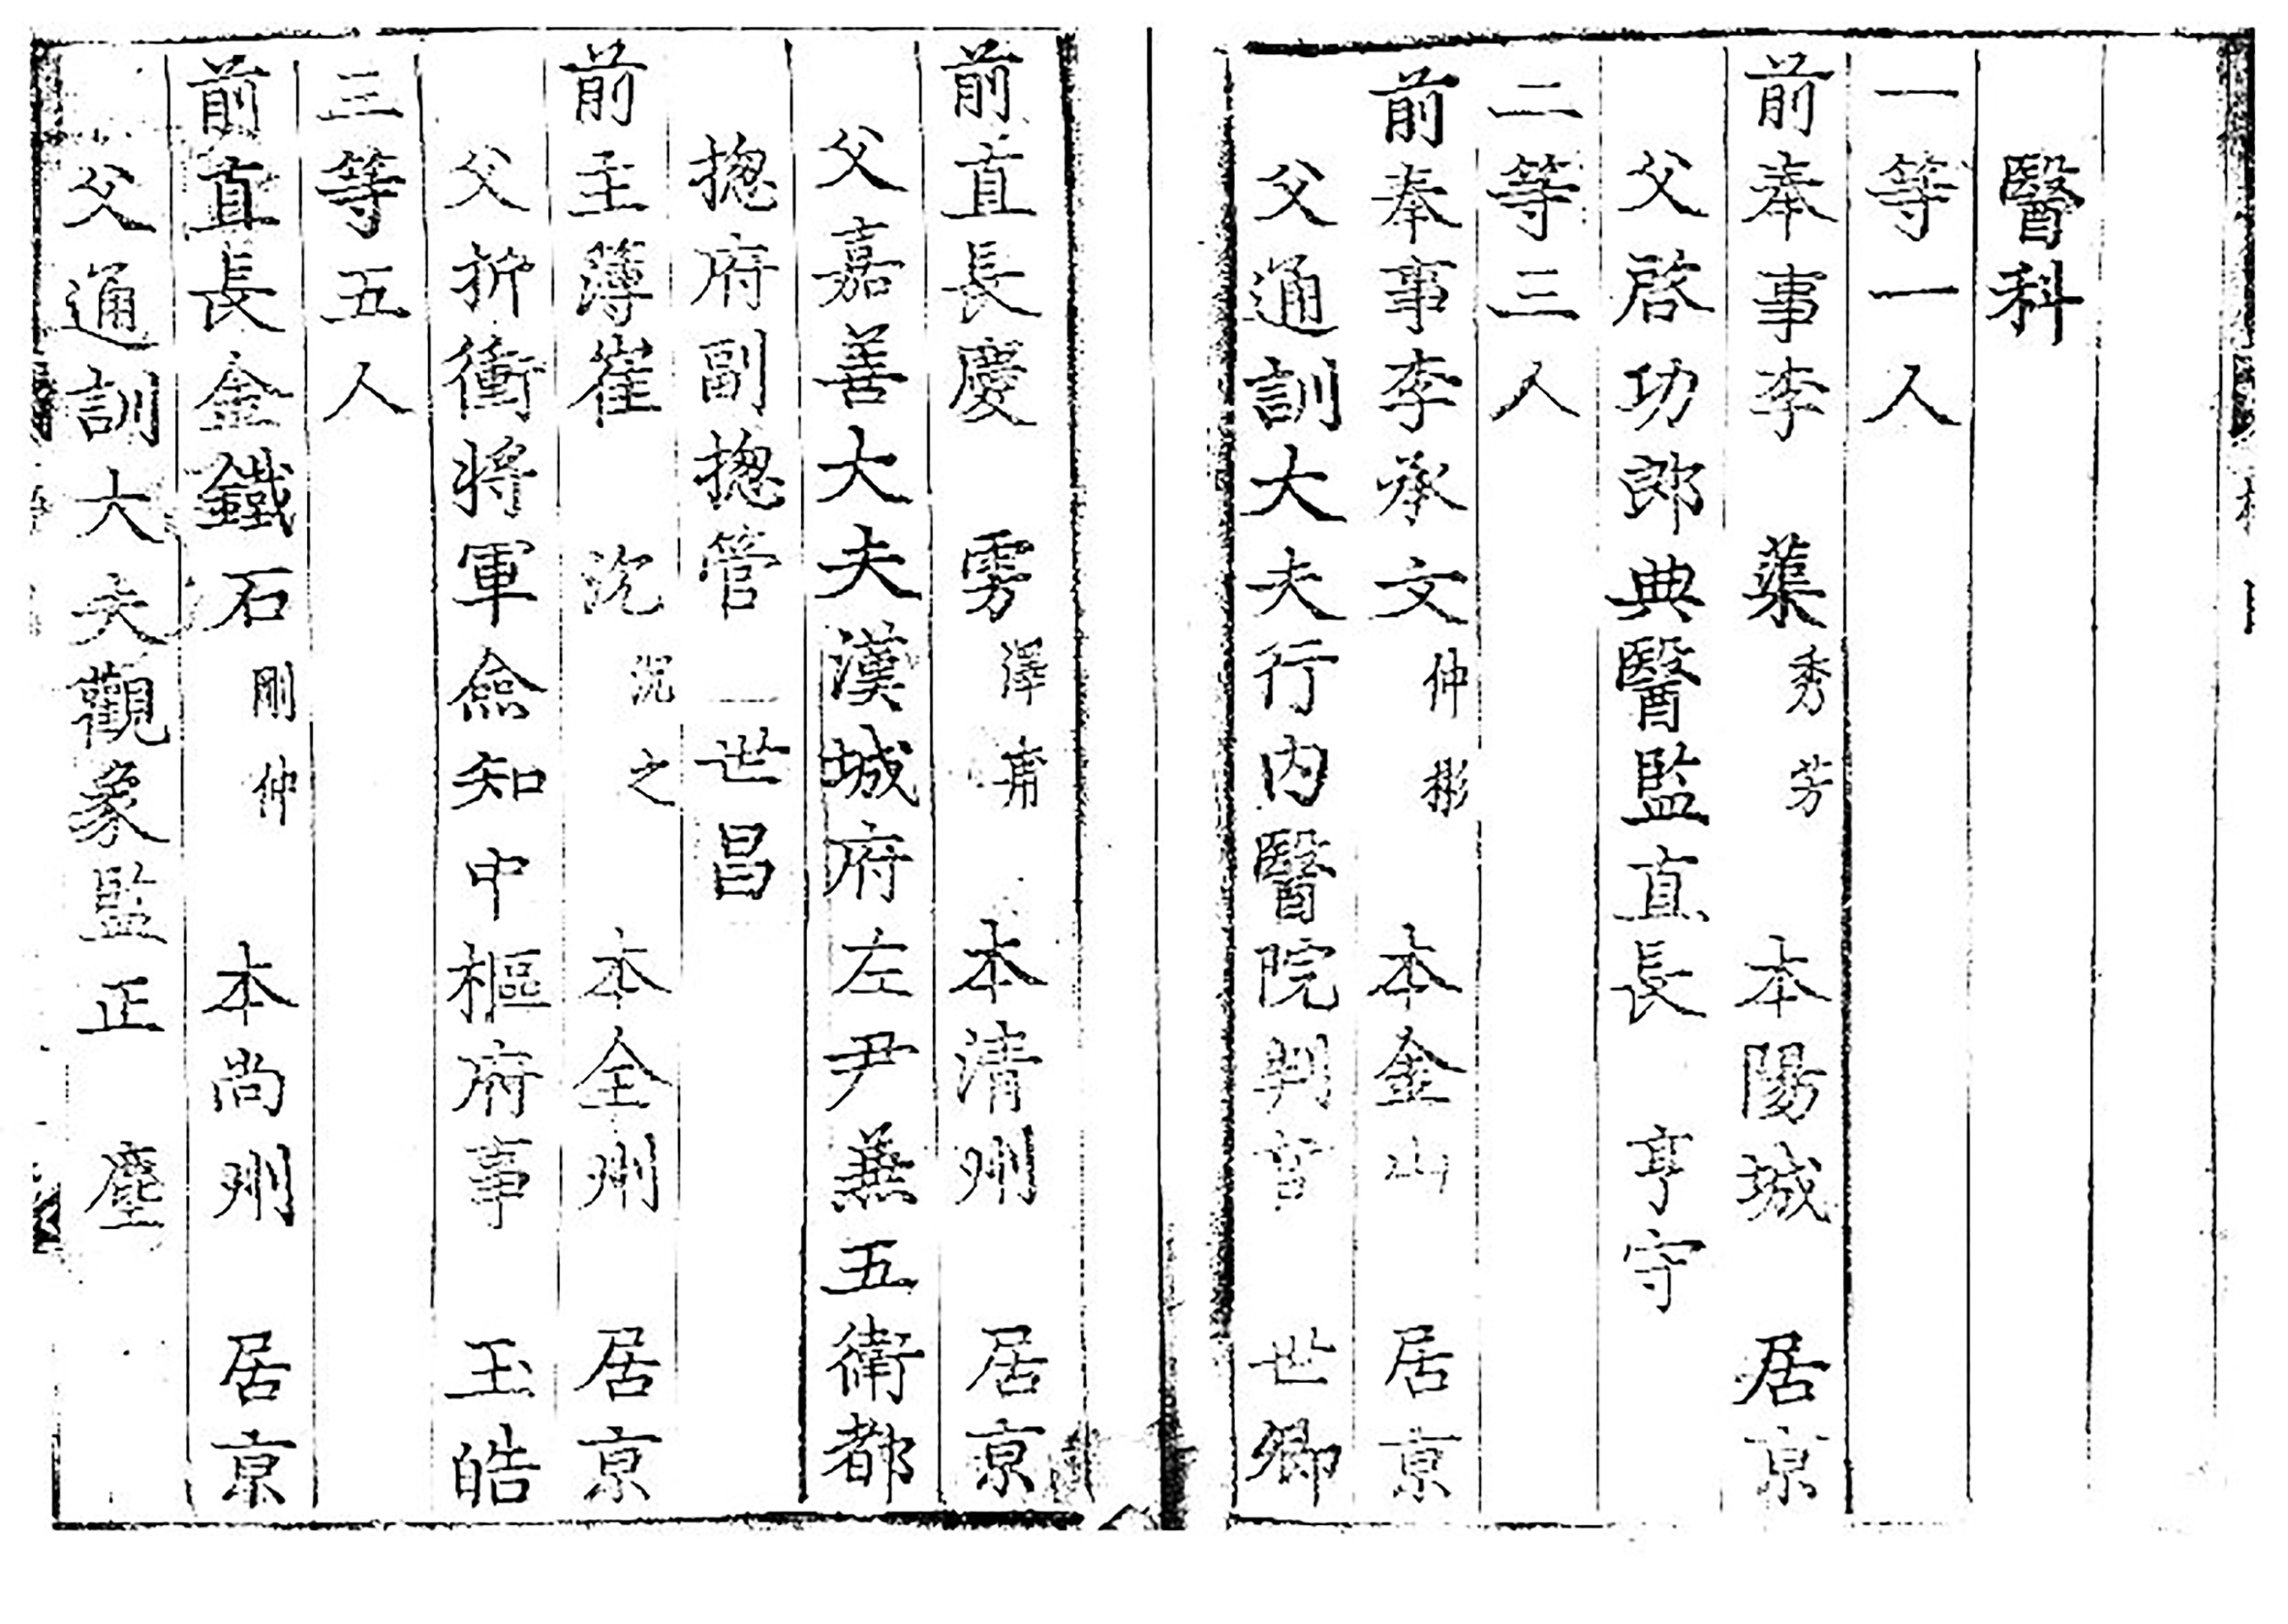 醫科
一等一人
前奉事李 蕖 秀芳 本陽城 居京
父啓功郎典醫監直長 亨守
二等三人
前奉事李承文 仲彬 本金山 居京
父通訓大夫行內醫院判官 世卿
前直長慶 雱 澤甫 本淸州 居京
父嘉善大夫漢城府左尹兼五衛都
摠府副摠管 世昌
前主簿崔 沇 沇之 本全州 居京
父折衝將軍僉知中樞府事 玉皓
三等五人
前直長金鐵石 剛仲 本尙州 居京
父通訓大夫觀象監正 塵